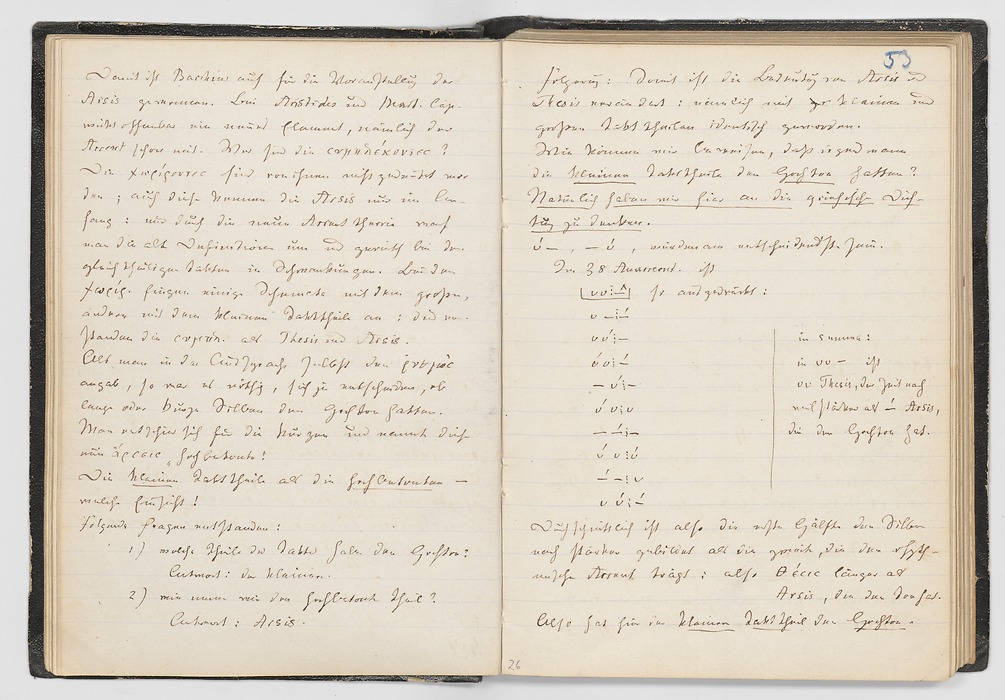 Damit ist Bacchius auch für die Voranstellung der
Arsis gewonnen. Bei Aristides und Mart. Cap.
wirkt offenbar ein neues Element, nämlich der
Accent schon mit. Wer sind die συμπλέκοντες?
Die χωρίζοντες sind von ihnen nicht gedeutet wor
den; auch diese kennen die Arsis nur im An-
fang: nur durch die neue Accenttheorie warf
man die alt. Definitionen um und gerieth bei den
gleichtheiligen Takten in Schwankungen. Bei den
χωρίζ. fingen einige Schemata mit dem großen,
andere mit dem kleinen Takttheile an: das ver-
standen die συμπλ. als Thesis und Arsis.
Als man in der Aussprache selbst den ῥυθμὸς
angab, so war es nöthig, sich zu entscheiden, ob
lange oder kurze Silben den Hochton hatten.
Man entschied sich für die Kürzen und nannte diese
nun ἄρσεις „hochbetonte!
Die kleinen Takttheile als die hochbetonten –
welche Einsicht!
Folgende Fragen entstanden:
1) welche Theile der Takte haben den Hochton?
Antwort: die kleinen.
2) wie nennen wir den hochbetonten Theil?
Antwort: Arsis.
53
Folgerung: Damit ist die Bedeutung von Arsis und
Thesis verändert: nämlich mit kleinen und
großen Takttheilen identisch geworden.
Wie können wir beweisen, daß irgend wann
die kleinen Takttheile den Hochton hatten?
Natürlich haben wir hier an die griechische Dich-
tung zu denken.
ύ – , – ύ , würden am entscheidendsten sein.
Im 38 Anacreont. ist
|υυ⁝–́| so ausgedrückt:
υ –⁝–́
υύ⁝–
ύυ⁝–́
– ύ⁝–
ύ υ⁝υ
– –́⁝–
ύ υ⁝ύ
–́ –⁝υ
υ ύ⁝–́
in summa:
in υυ – ist
υυ Thesis, der Zeit nach
viel stärker als –́ Arsis,
die den Hochton hat.
Durchschnittlich ist also die erste Hälfte der Silben
noch stärker gebildet als die zweite, die den rhyth-
mischen Accent trägt: also θέσις länger als
Arsis, die den Ton hat.
Also hat hier der kleinere Takttheil den Hochton.
26